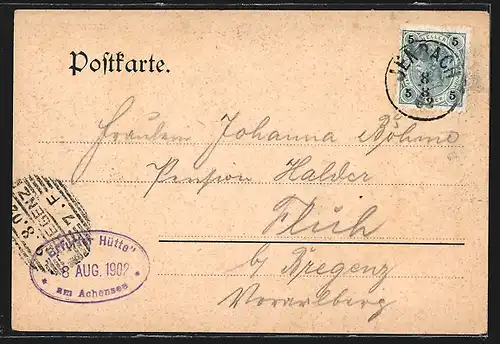 Postkarte.
5 5
5 5
JENBACH
8
8
02
Fräulein Johanna Böhme
Pension Halder
Fluh
b/ Bregenz
Vorarlberg
8.02
BREGENZ
7.F
"Erfurter Hütte"
8 AUG. 1902
am Achensee